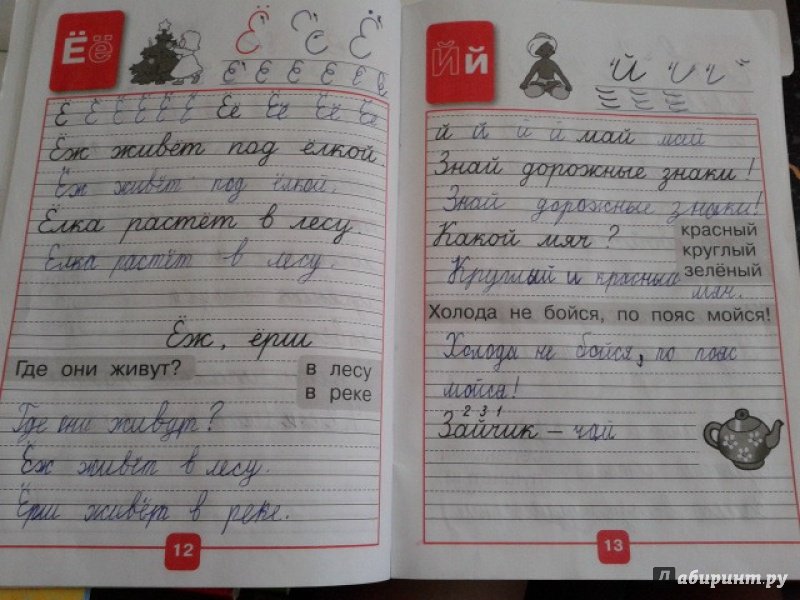 Ё ё
Ё Ё Ё
Ё Ё Ё Ё Ё Ё
Ё Ё Ё Ё Ё Ё Её Её Её Её
Ёж живёт под ёлкой.
Ёж живёт под ёлкой.
Ёлка растёт в лесу.
Ёлка растёт в лесу.
Ёж, ёрш
Где они живут?
в лесу
в реке
Где они живут?
Ёж живёт в лесу.
Ёрш живёт в реке.
12
Й й
й й й й май май
Знай дорожные знаки!
Знай дорожные знаки!
Какой мяч?
красный
круглый
зелёный
Круглый и красный
мяч.
Холода не бойся, по пояс мойся!
Холода не бойся, по пояс
мойся!
2 3 1
Зайчик – чай
13
Лабиринт.ру